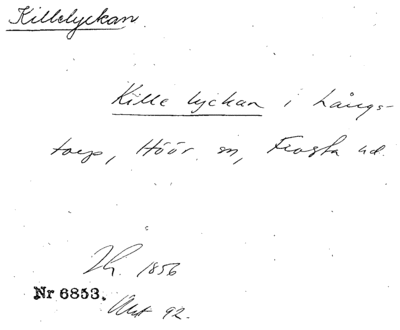 Killelyckan
Kille lyckan i Långs-
torp, Höör sn, Frosta hd.
1856
Nr 6853.
Akt 92.